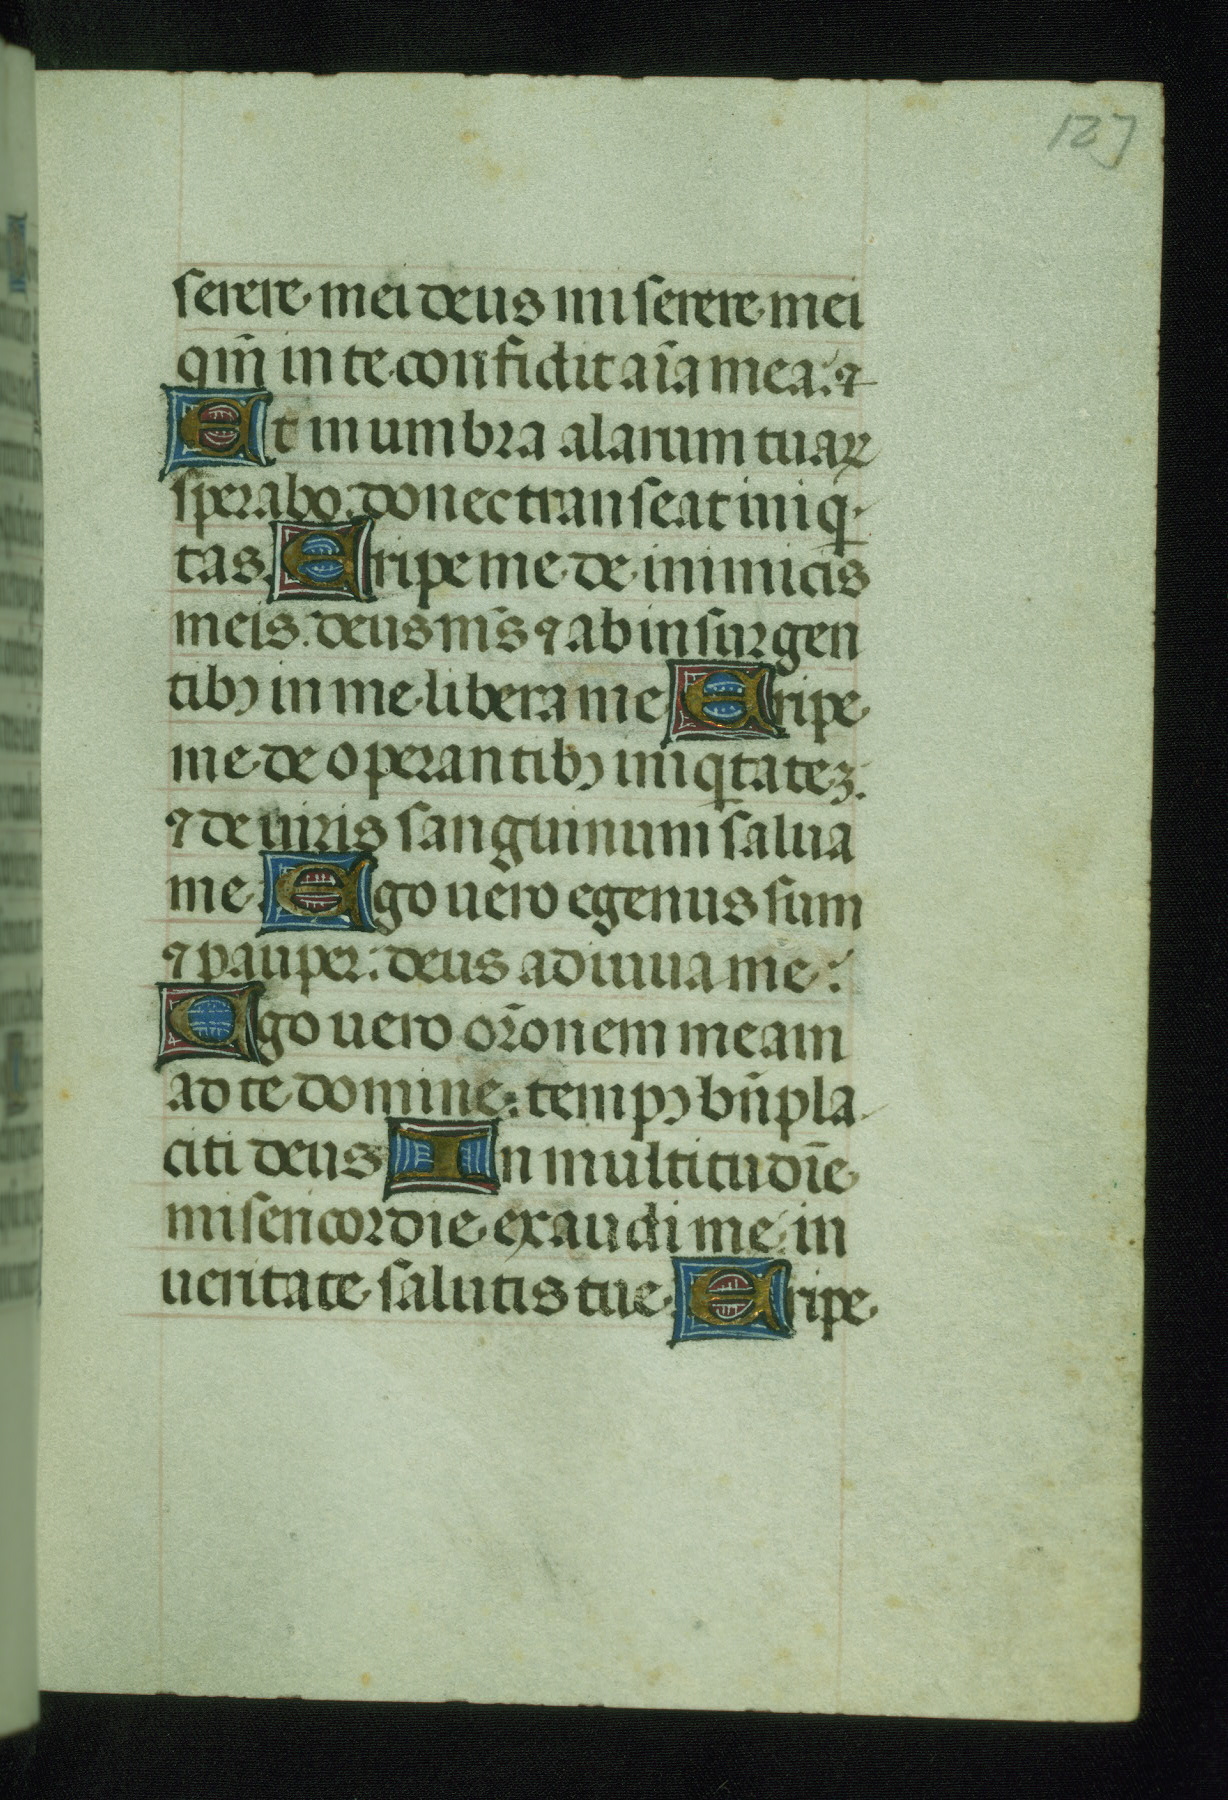 127
serere mei deus miserere mei
qm̄ in te confidit aīa mea: ⁊
Et in umbra alarum tuaꝝ
sperabo. donec transeat iniq-
tas. Eripe me de inimicis
meis. deus m̄s ⁊ ab insurgen
tibꝰ in me libera me Eripe
me de operantibꝰ iniqtateꝫ.
⁊ de uiris sanguinum salua
me. Ego uero egenus sum
⁊ pauper: deus adiuua me:
Ego uero or̄onem meam
ad te domine: tempꝰ bn̄pla
citi deus In multitudīe
misericordie exaudi me: in
ueritate salutis tue. Eripe